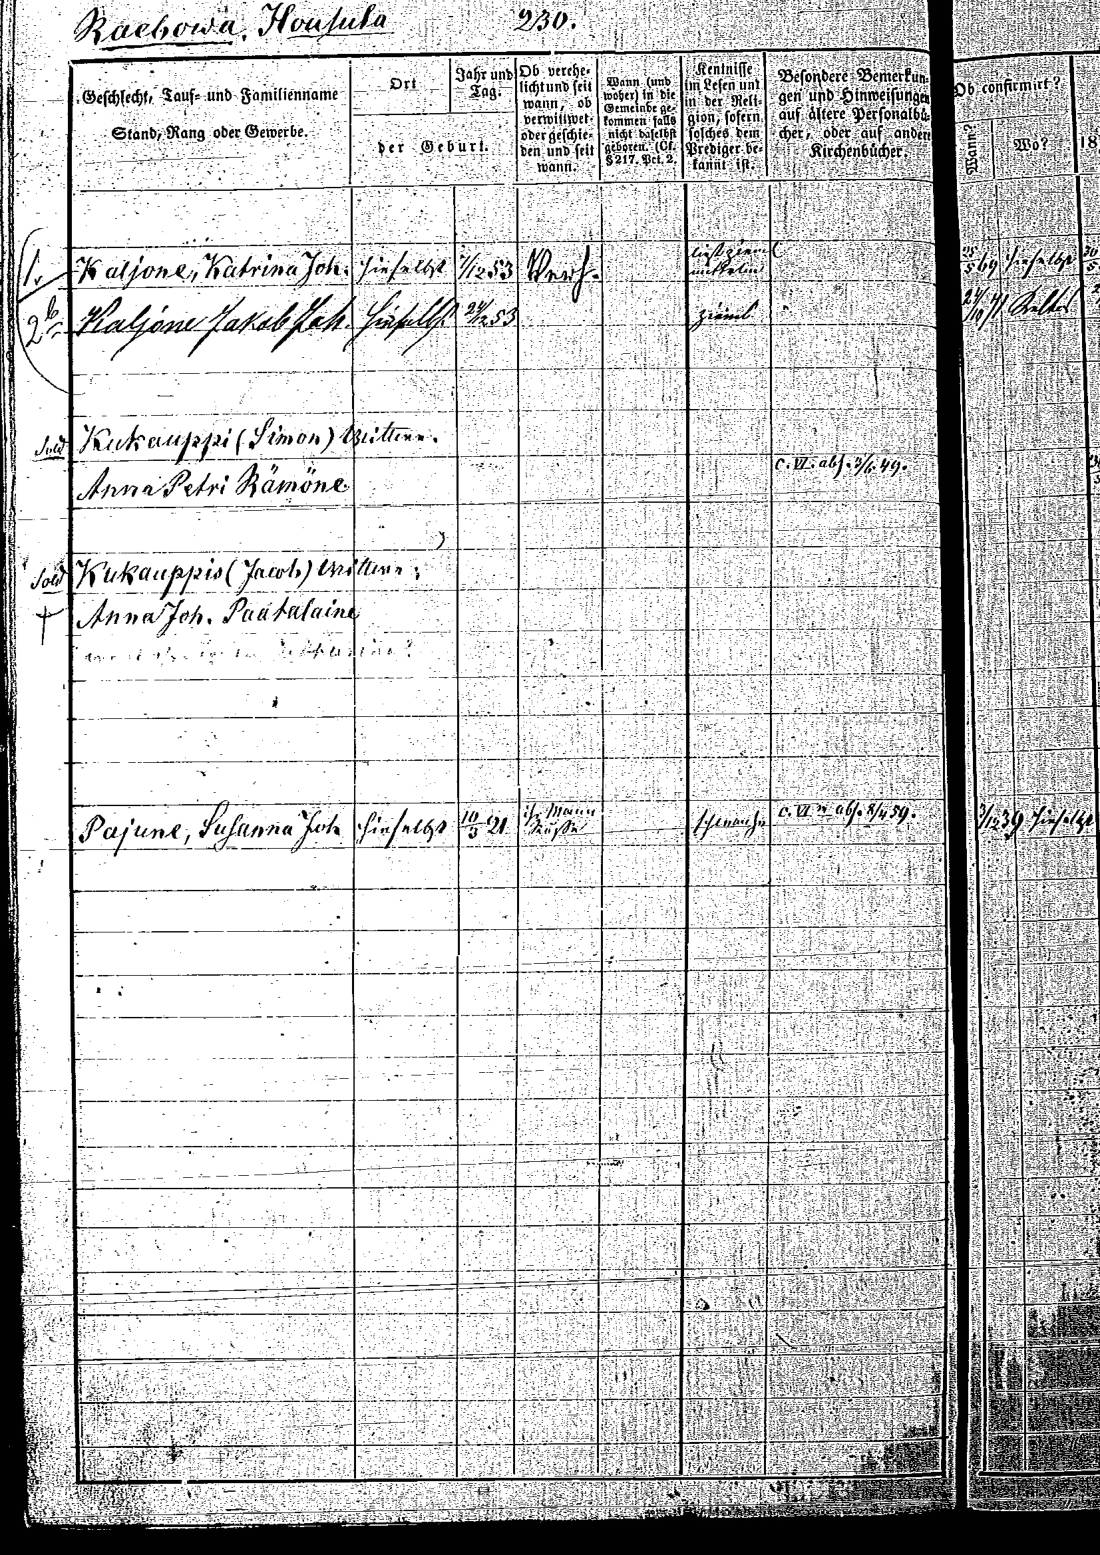 Rachowa, Housula 230.
Geschlecht, Tauf- und Familienname
Stand, Rang oder Gewerbe.
Ort
Jahr und Tag.
der Geburt.
Ob verehe-
licht und seit
wann, ob
verwittwet
oder geschie-
den und seit
wann.
Wann (und
woher) in die
Gemeinde ge-
kommen falls
nicht daselbst
geboren. (Cf.
§ 217. Pct. 2.
Kentnisse
im Lesen und
in der Reli-
gion, sofern
solches dem
Prediger be-
kannt ist.
Besondere Bemerkun-
gen und Hinweisungen
auf ältere Personalbü-
cher, oder auf andere
Kirchenbücher.
Ob confirmirt?
Wann?
Wo?
18
1. Kaljone, Katrina Joh. hieselbst 7/12 53 Verh. 25/5 69 hieselbst
2 Kaljone Jakob Joh. hieselbst 53 zieml 71
Sold Kukauppi (Simon) Wittwe.
Anna Petri Rämöne c. VI. abs. 49.
Sold Kukauppis (Jacob) Wittwe;
† Anna Joh. Paatalaine
Pajune, Susanna Joh hieselbst 10/3 21 ihr Mann Russe schwach c. VI abs. 8/4 59. 39 hieselbst